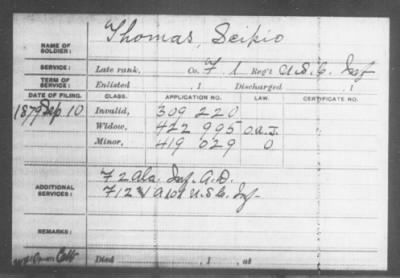 Thomas, Scipio
NAME OF SOLDIER:
SERVICE: Late rank, Co. F 1 Reg't U.S.C. Inf
TERM OF SERVICE: Enlisted 1 Discharged 1
DATE OF FILING. CLASS. APPLICATION NO. LAW. CERTIFICATE NO.
1879 Sep 10 Invalid, 309 220
Widow, 422 995
Minor, 419 029 0
ADDITIONAL SERVICES: F 2 Ala. Inf. A.D.
U.S.C. Inf.
REMARKS:
Died , 1 , at